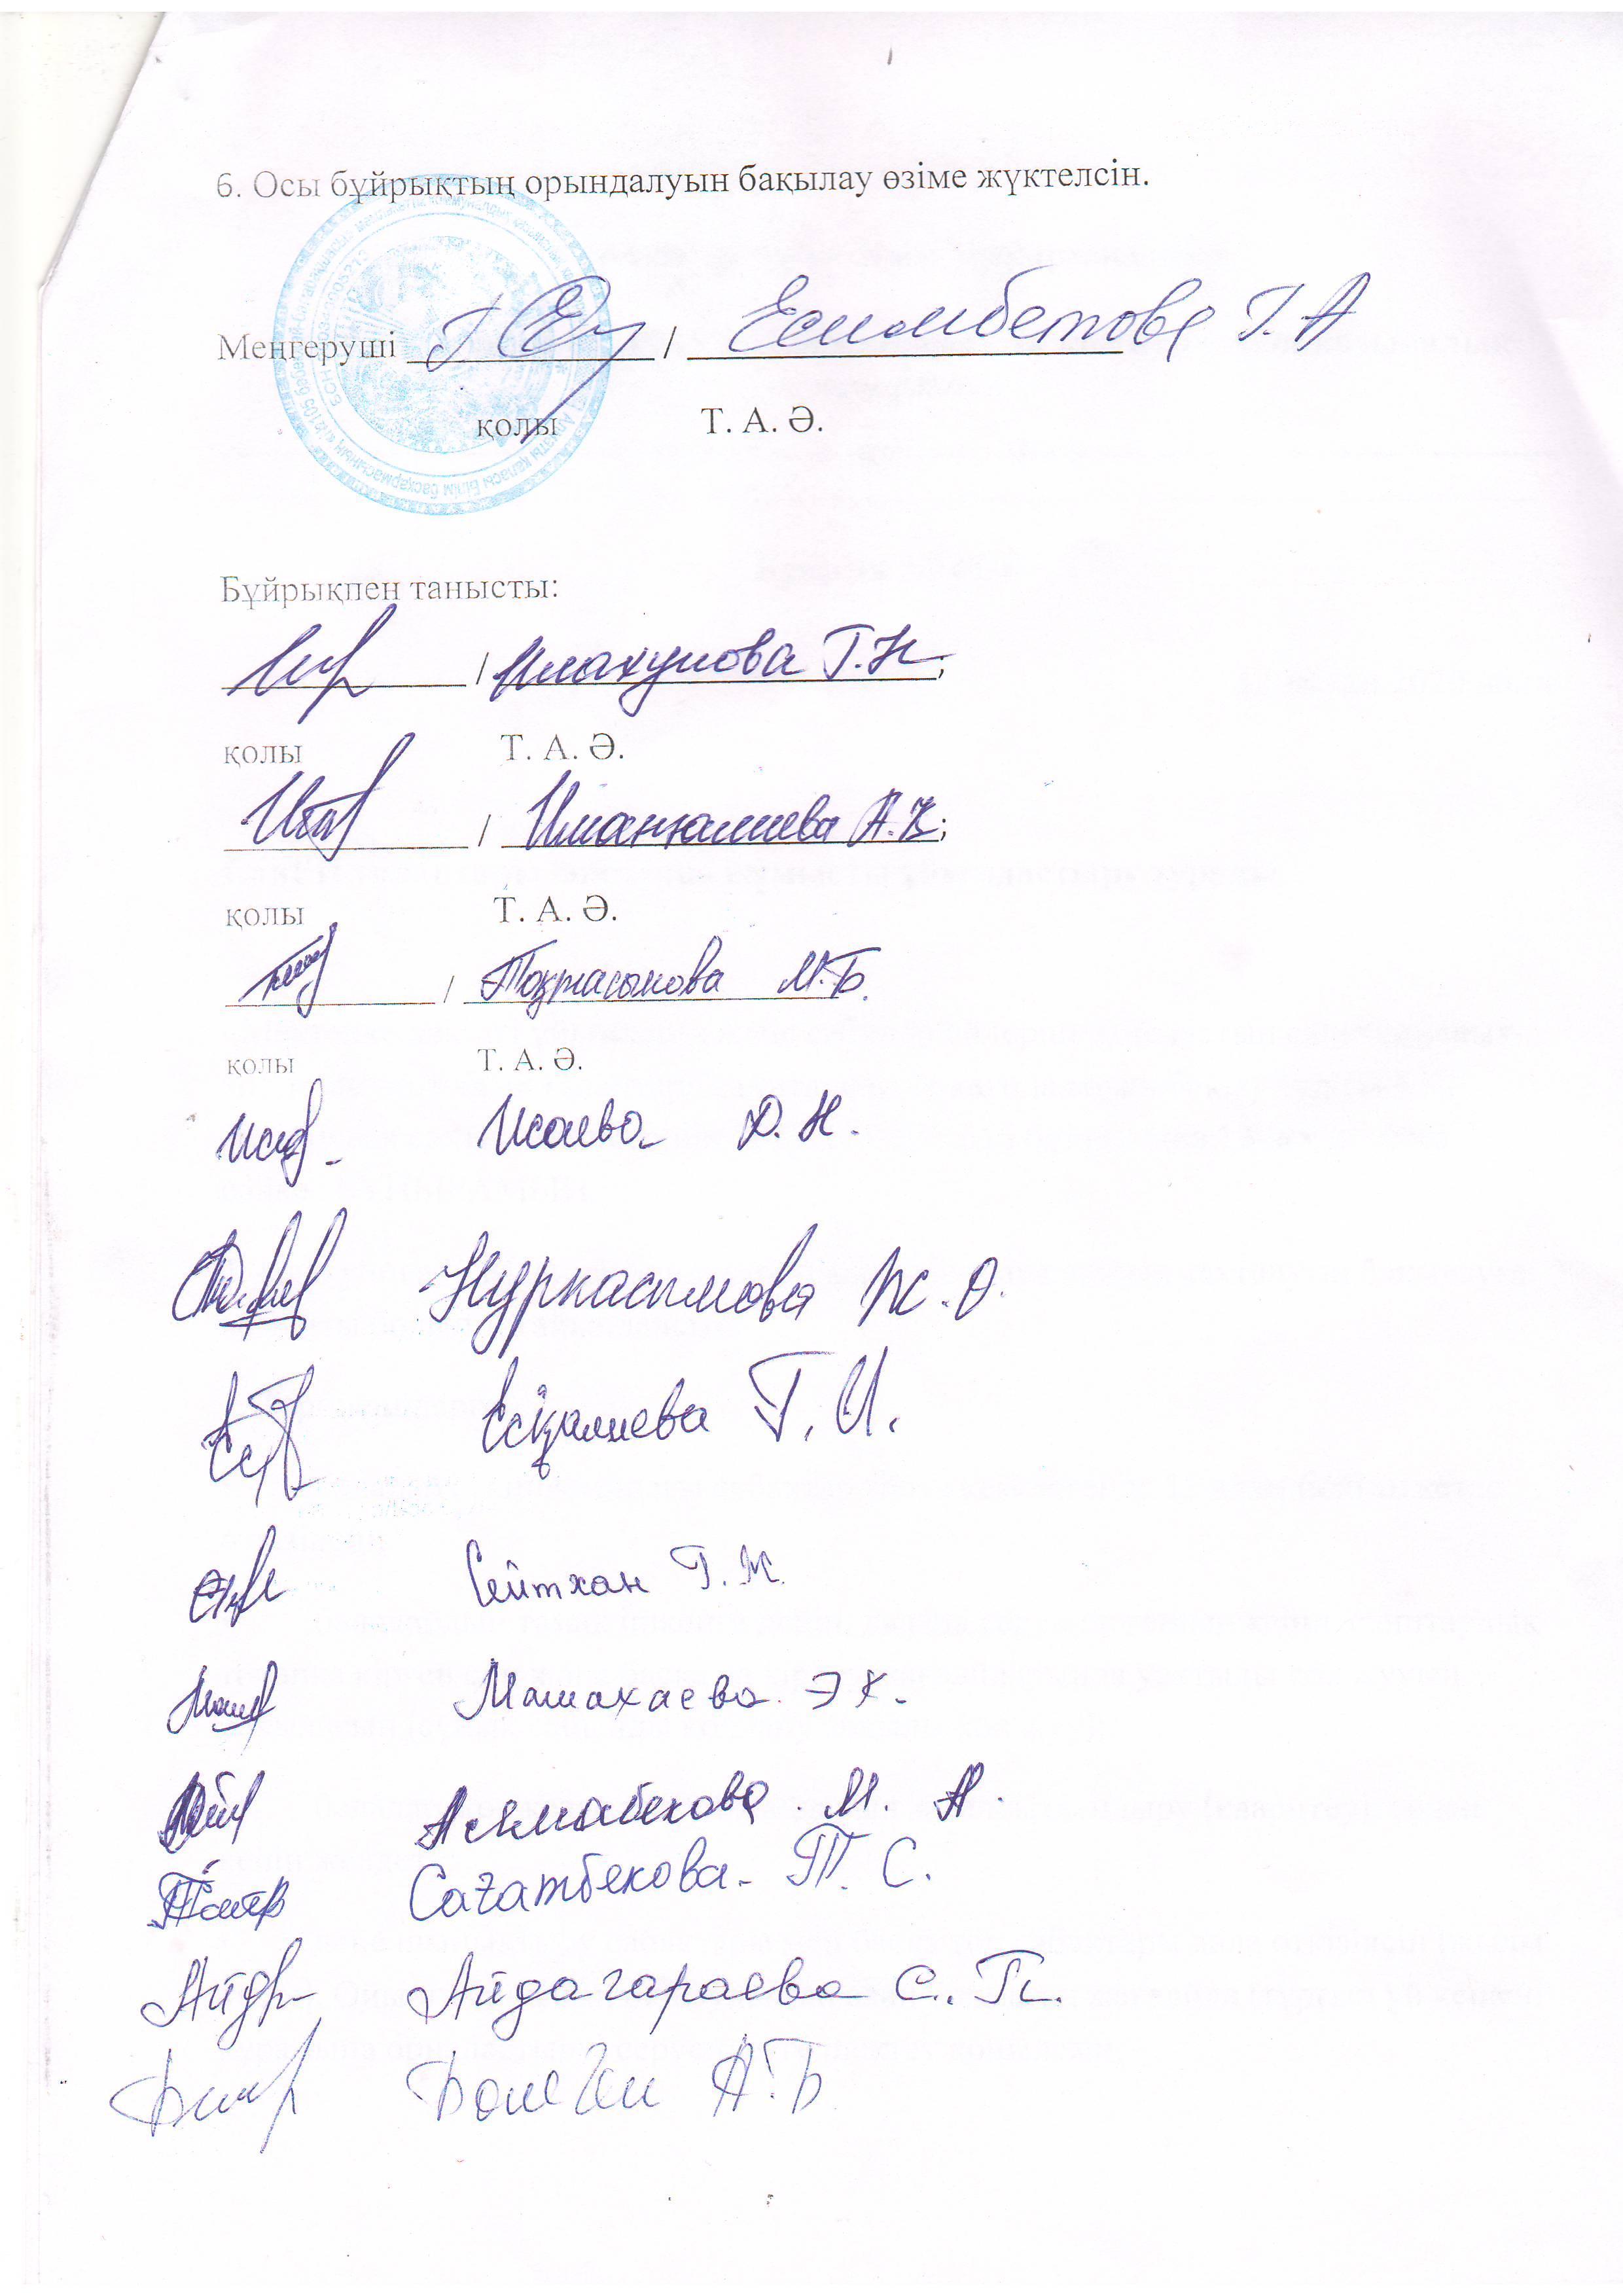 6. Осы бұйрықтың орындалуын бақылау өзіме жүктелсін.
Меңгеруші / Есимбетова Г. А
қолы Т. А. Ә.
Бұйрықпен танысты:
/ Имахунова Г.Н.;
қолы Т. А. Ә.
/ Иманталиева А.Қ;
қолы Т. А. Ә.
/ Тоқтасынова М.Б.
қолы Т. А. Ә.
Исаева Д. Н.
Нуркасымова Ж. О.
Есқалиева Г. И.
Сейтхан Г. К.
Машахаева Э К.
М. А.
Сағатбекова Т. С.
Айдагараева С. П.
А. Б